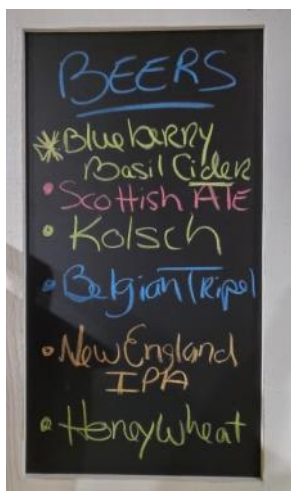 BEERS
Blueberry
Basil Cider
Scottish ALE
Kolsch
Belgian Tripel
New England
IPA
Honey Wheat